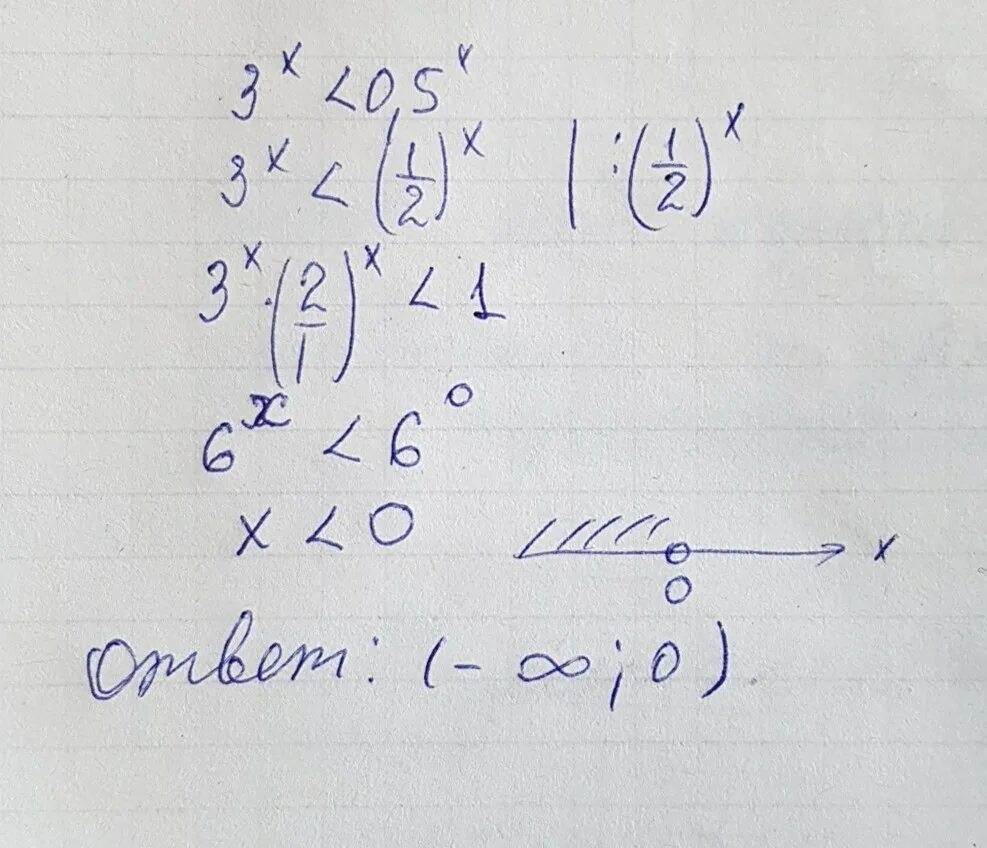 3^x < 0,5^x
3^x < (1/2)^x | : (1/2)^x
3^x · (2/1)^x < 1
6^x < 6^0
x < 0
0 x
Ответ: (- ∞; 0)